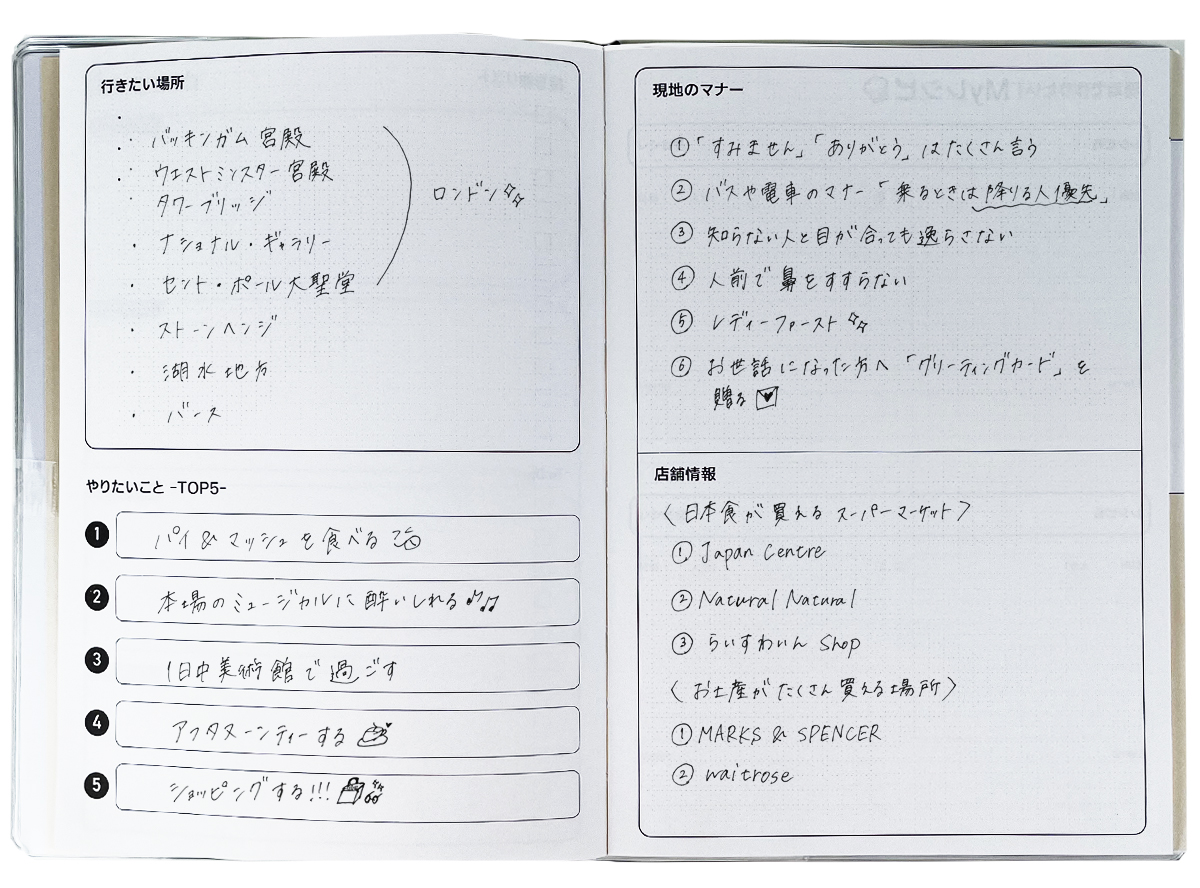 行きたい場所
・バッキンガム宮殿
・ウエストミンスター宮殿
・タワーブリッジ
・ナショナル・ギャラリー
・セント・ポール大聖堂
ロンドン
・ストーンヘンジ
・湖水地方
・バース
やりたいこと -TOP5-
1 パイ&マッシュを食べる
2 本場のミュージカルに酔いしれる♪♫
3 1日中美術館で過ごす
4 アフタヌーンティーする
5 ショッピングする!!!
現地のマナー
①「すみません」「ありがとう」はたくさん言う
②バスや電車のマナー「乗るときは降りる人優先」
③知らない人と目が合っても逸らさない
④人前で鼻をすすらない
⑤レディーファースト
⑥お世話になった方へ「グリーティングカード」を
贈る
店舗情報
〈日本食が買えるスーパーマーケット〉
①Japan Centre
②Natural Natural
③らいすわいん Shop
〈お土産がたくさん買える場所〉
①MARKS & SPENCER
②waitrose